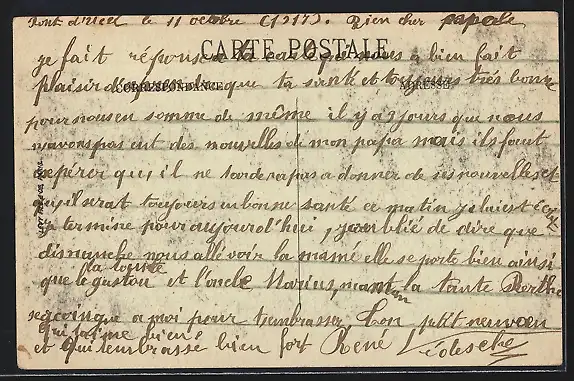 Pont d'Ucel le 11 octobre (1917). Bien cher papale
CARTE POSTALE
CORRESPONDANCE
ADRESSE
je fait réponse a ta carte qui nous à bien fait
plaisir d'apprendre que ta santé et toujours très bonne
pour nous en somme de même il y a 7 jours que nous
n'avons pas eut des nouvelles de mon papa mais ils faut
espérer qu'il ne tardera pas a donner de ses nouvelles et
qu'il serat toujours en bonne santé ce matin je lui est écrit
je termine pour aujourd'hui, j'oublié de dire que
dimanche nous allé voir la mamé elle se porte bien ainsi
que le gaston et l'oncle Marius, maman la tante Berthe
la Louise
se qu'a moi pour t'embrasser, Ton petit neuveu
qui t'aime bien
et qui t'embrasse bien fort René